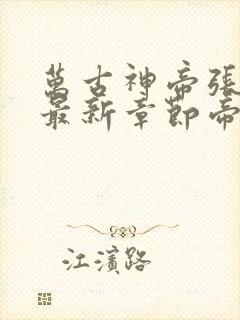 萬古神帝張
最新章節帝
江濱路